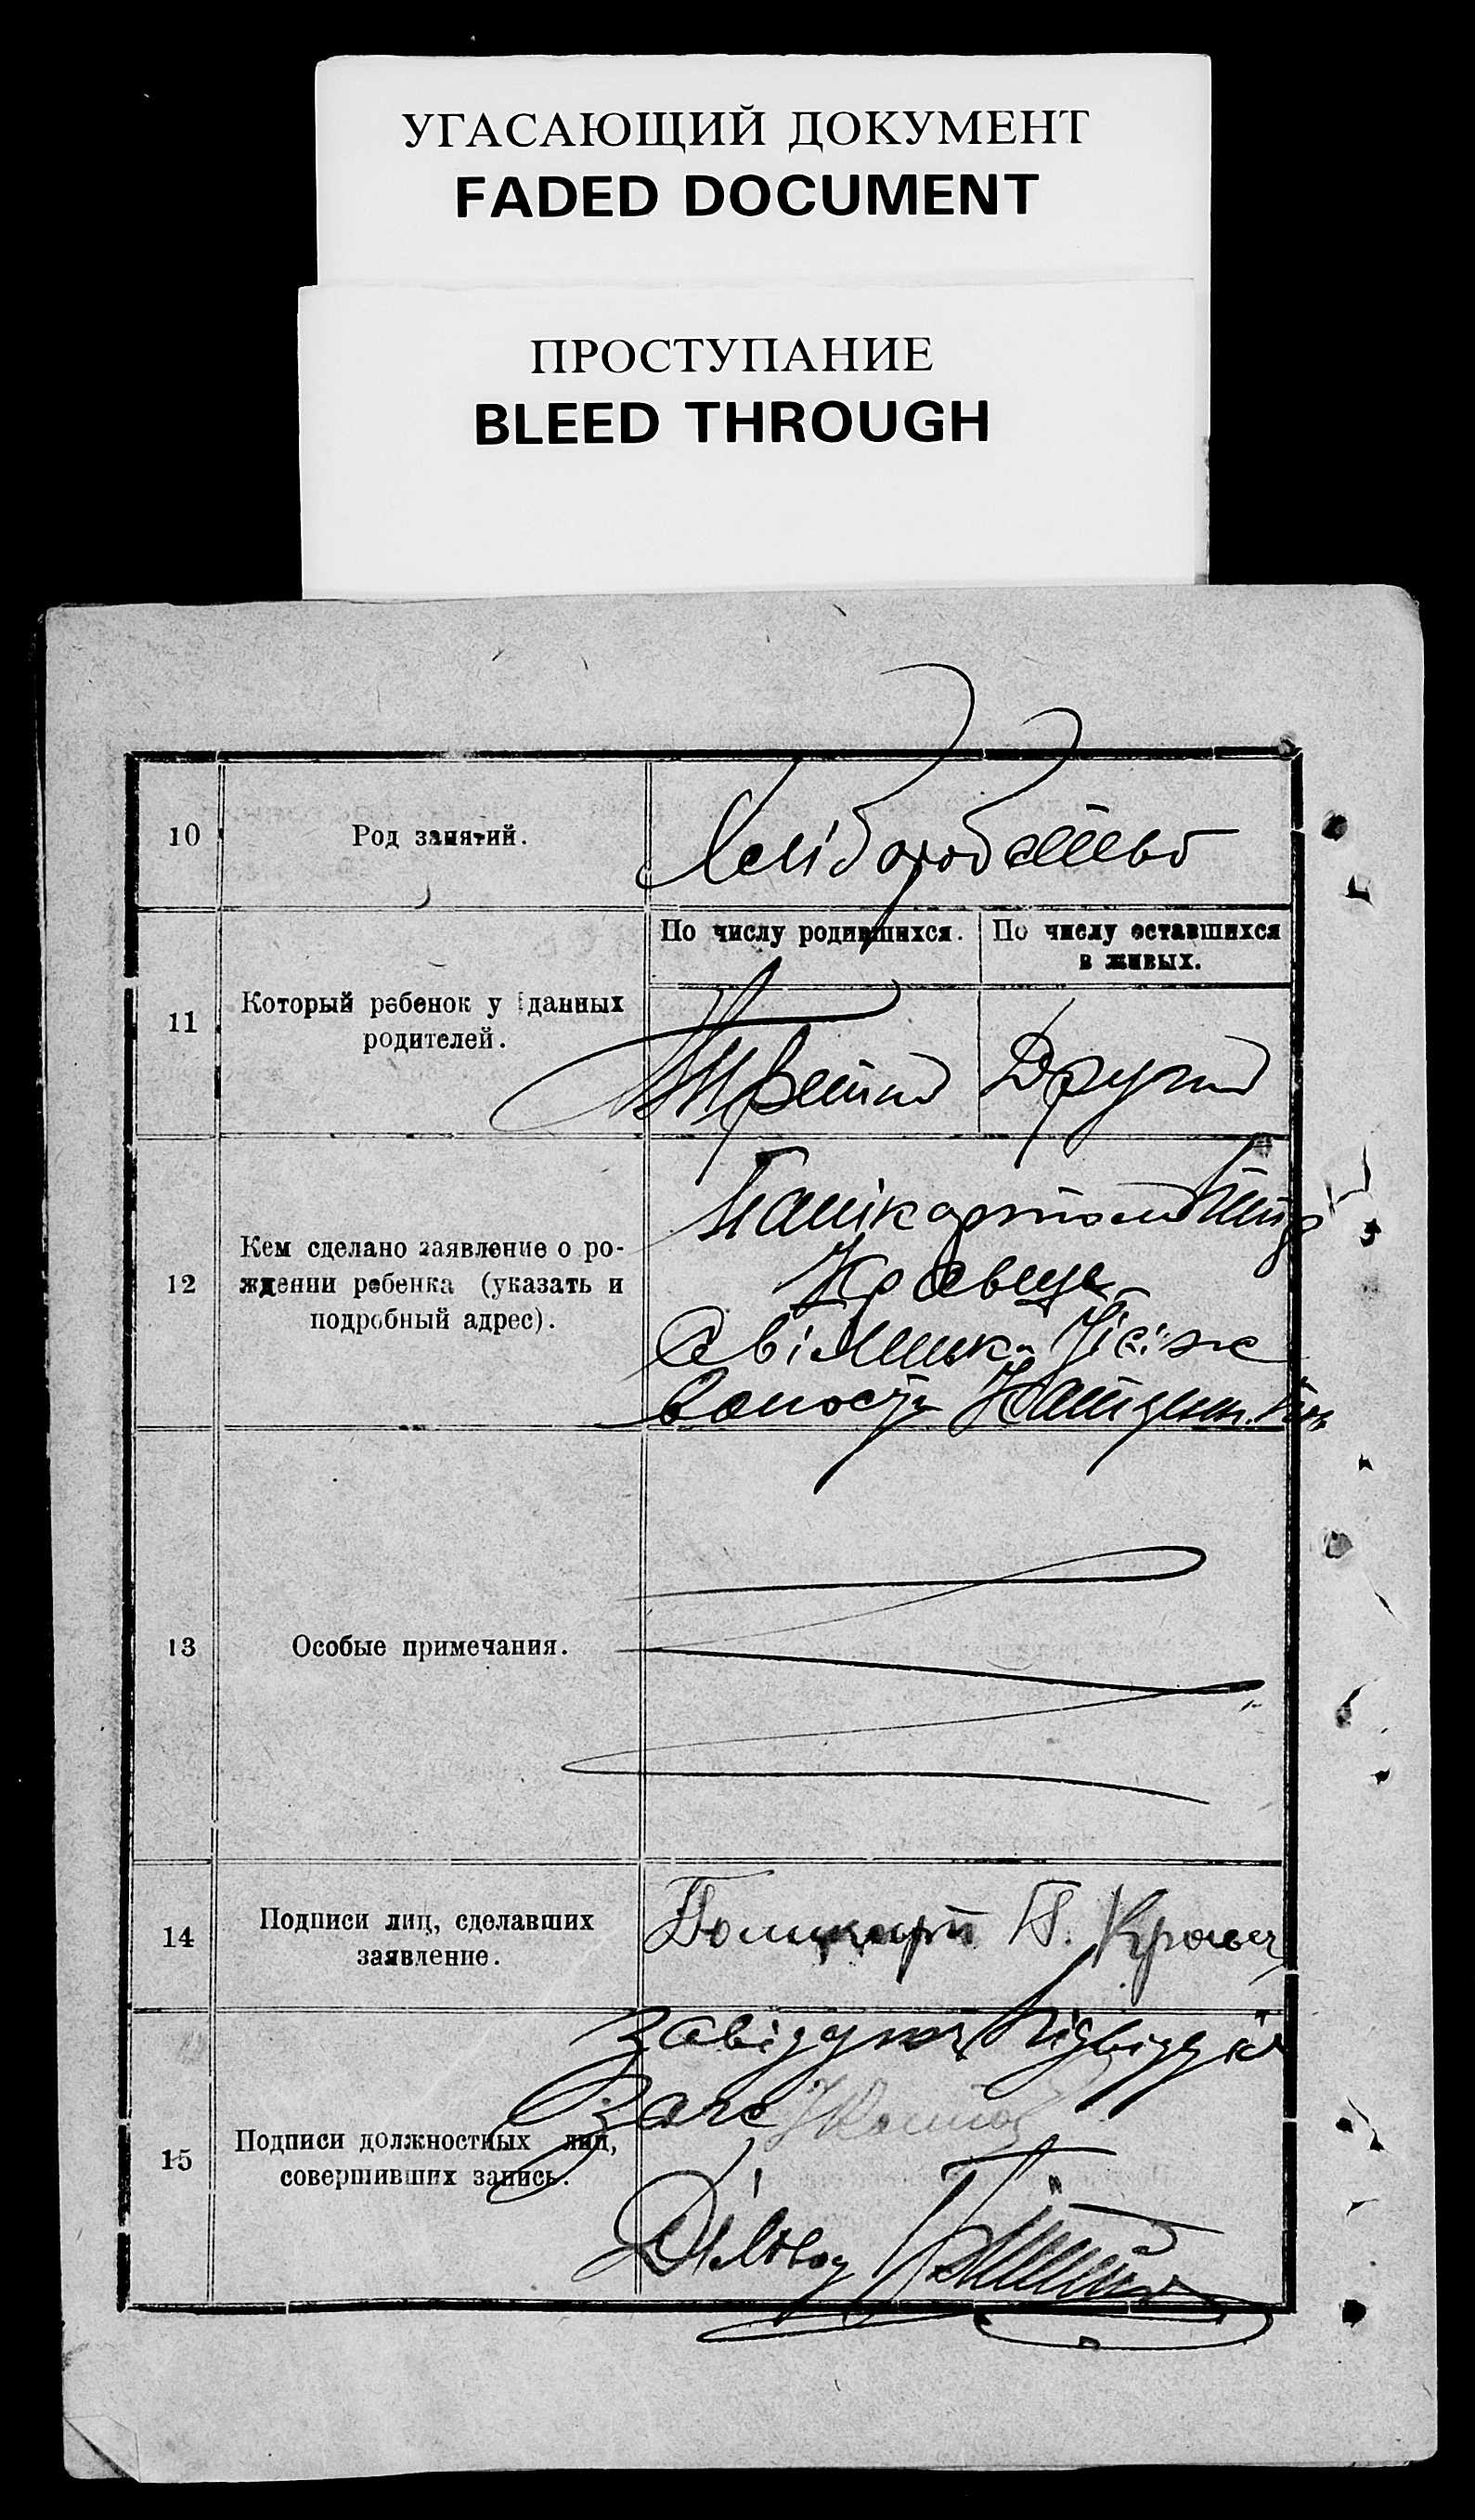 УГАСАЮЩИЙ ДОКУМЕНТ
FADED DOCUMENT
ПРОСТУПАНИЕ
BLEED THROUGH
10
Род занятий.
Хлібороб
11
Который ребенок у данных
родителей.
По числу родившихся.
По числу оставшихся
в живых.
Третий
Другий
12
Кем сделано заявление о ро-
ждении ребенка (указать и
подробный адрес).
Кравець
волость
13
Особые примечания.
14
Подписи лиц, сделавших
заявление.
П. Кравец
15
Подписи должностных лиц,
совершивших запись.
Завідуючий Підвідділ
Загс
Діловод